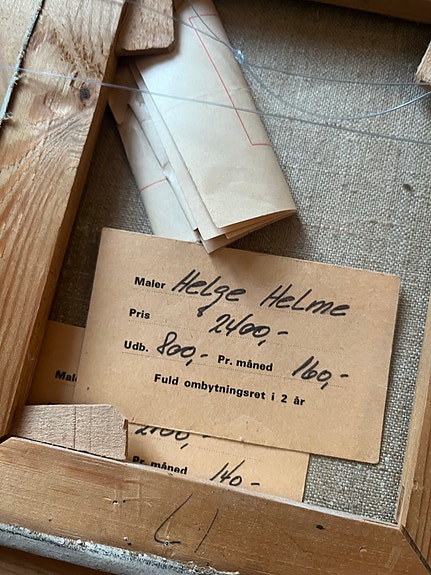 Maler Helge Helme
Pris 2400,-
Udb. 800,- Pr. måned 160,-
Fuld ombytningsret i 2 år
Mal
2100,-
Pr. måned 140,-